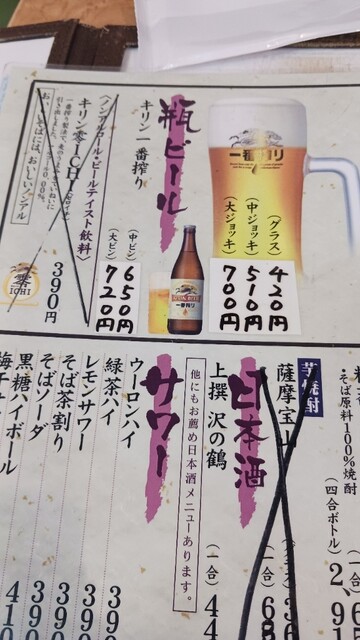 一番搾り
(グラス) 420円
(中ジョッキ) 510円
(大ジョッキ) 700円
瓶ビール
キリン一番搾り
(中ビン) 650円
(大ビン) 720円
〈ノンアルコール・ビールテイスト飲料〉
キリン零ICHI
一番搾り製法で、麦のうまみをていねいに
引き出しました。
お、そばには、おいしいノンアル
390円
零ICHI
そば原料100%焼酎
(四合ボトル) 2,9
芋焼酎
薩摩宝山
日本酒
上撰 沢の鶴
(一合) 44
他にもお薦め日本酒メニューあります。
サワー
ウーロンハイ 39
緑茶ハイ 39
レモンサワー 39
そば茶割り 39
そばソーダ 39
黒糖ハイボール 41